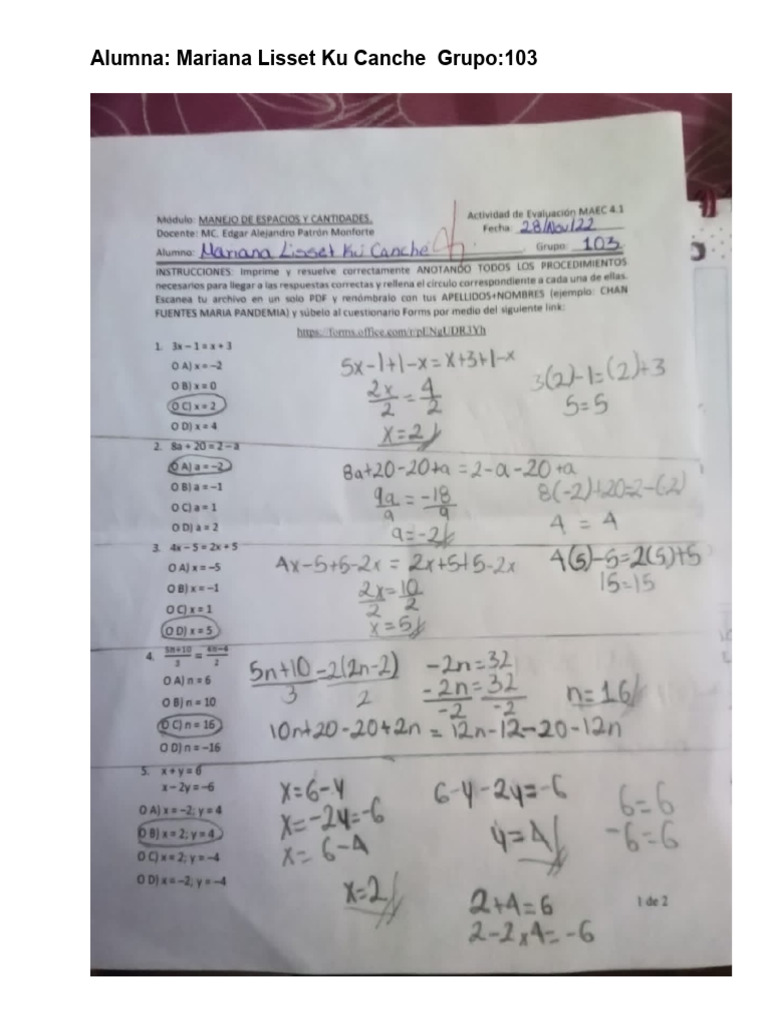 Alumna: Mariana Lisset Ku Canche Grupo:103
Módulo: MANEJO DE ESPACIOS Y CANTIDADES.
Actividad de Evaluación MAEC 4.1
Docente: MC. Edgar Alejandro Patrón Monforte
Fecha: 28/Nov/22
Alumno: Mariana Lisset Ku Canche
Grupo: 103
INSTRUCCIONES: Imprime y resuelve correctamente ANOTANDO TODOS LOS PROCEDIMIENTOS
necesarios para llegar a las respuestas correctas y rellena el círculo correspondiente a cada una de ellas.
Escanea tu archivo en un solo PDF y renómbralo con tus APELLIDOS+NOMBRES (ejemplo: CHAN
FUENTES MARIA PANDEMIA) y súbelo al cuestionario Forms por medio del siguiente link:
https://forms.office.com/r/pENgUDR3Yh
1. 3x – 1 = x + 3
O A) x = –2
O B) x = 0
O C) x = 2
O D) x = 4
5x-1+1-x=x+3+1-x
2x/2 = 4/2
x=2
3(2)-1=(2)+3
5=5
2. 8a + 20 = 2 – a
O A) a = –2
O B) a = –1
O C) a = 1
O D) a = 2
8a+20-20+a = 2-a-20+a
9a/9 = -18/9
a=-2
8(-2)+20=2-(-2)
4 = 4
3. 4x – 5 = 2x + 5
O A) x = –5
O B) x = –1
O C) x = 1
O D) x = 5
4x-5+5-2x = 2x+5+5-2x
2x/2 = 10/2
x=5
4(5)-5=2(5)+5
15=15
4. 5n+10/3 = 4n–4/2
O A) n = 6
O B) n = 10
O C) n = 16
O D) n = –16
5n+10/3 - 2(2n-2)/2
-2n=32
-2n/-2 = 32/-2
n=16
10n+20-20+2n = 12n-12-20-12n
5. x + y = 6
x – 2y = –6
O A) x = –2; y = 4
O B) x = 2; y = 4
O C) x = 2; y = –4
O D) x = –2; y = –4
x=6-y
x=-2y=-6
x= 6-4
x=2
6-y-2y=-6
y=4
6=6
-6=6
2+4=6
2-2x4=-6
1 de 2